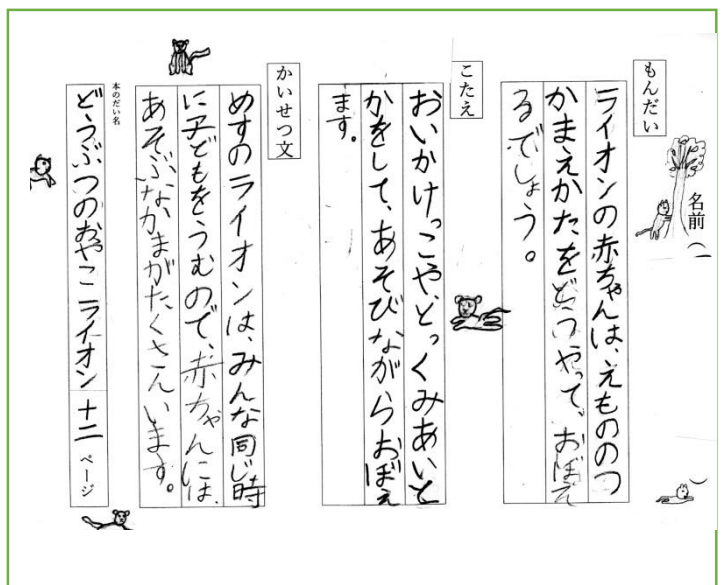 名前（
もんだい
ライオンの赤ちゃんは、えもののつ
かまえかたをどうやって、おぼえ
るでしょう。
こたえ
おいかけっこや、とっくみあいと
かをして、あそびながらおぼえ
ます。
かいせつ文
めすのライオンは、みんな同じ時
に子どもをうむので、赤ちゃんには、
あそぶなかまがたくさんいます。
本のだい名
どうぶつのおやこ ライオン 十二 ページ